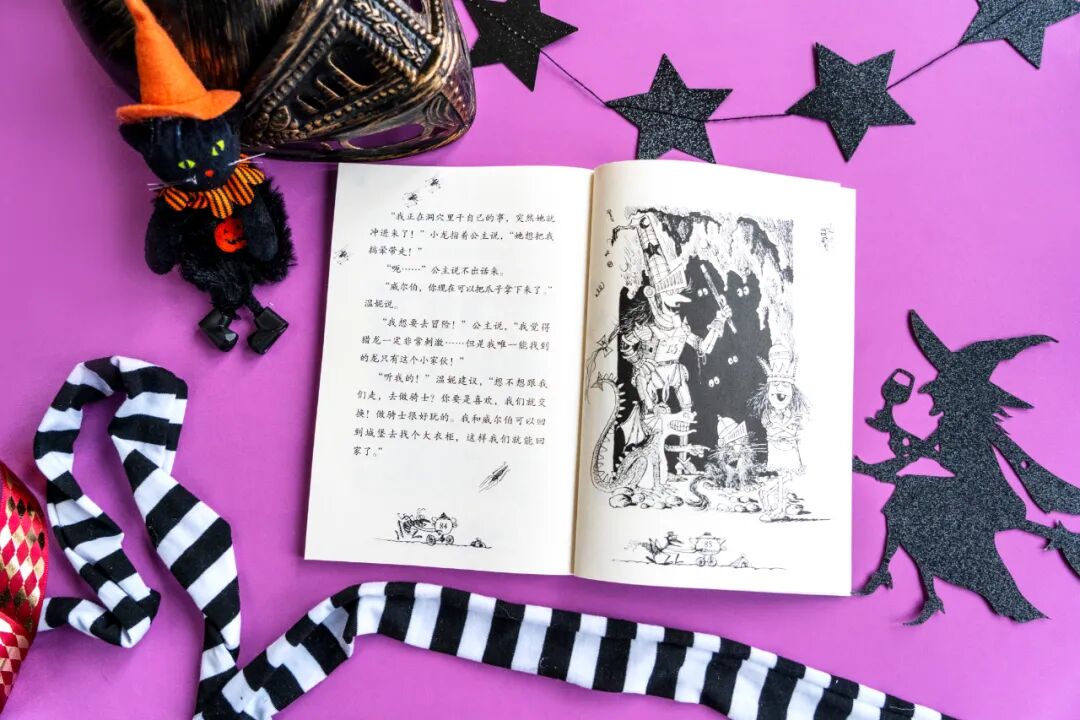 “我正在洞穴里干自己的事，突然她就
冲进来了！”小龙指着公主说，“她想把我
搞晕带走！”
“呃……”公主说不出话来。
“威尔伯，你现在可以把爪子拿下来了。”
温妮说。
“我想要去冒险！”公主说，“我觉得
猎龙一定非常刺激……但是我唯一能找到
的龙只有这个小家伙！”
“听我的！”温妮建议，“想不想跟我
们走，去做骑士？你要是喜欢，我们就交
换！做骑士很好玩的。我和威尔伯可以回
到城堡去找个大衣柜，这样我们就能回
家了。”
84
85